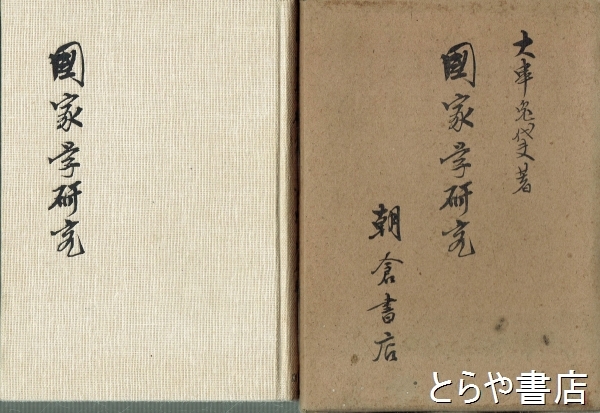 國家学研究
大串兎代夫著
國家学研究
朝倉書店
とらや書店